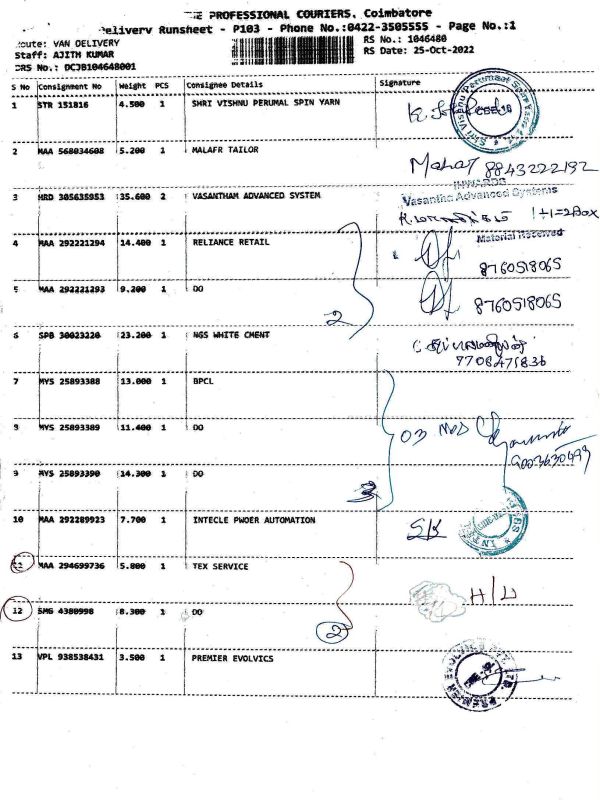 THE PROFESSIONAL COURIERS, Coimbatore
Delivery Runsheet - P103 - Phone No.:0422-3505555 - Page No.:1
Route: VAN DELIVERY RS No.: 1046480
Staff: AJITH KUMAR RS Date: 25-Oct-2022
DRS No.: DCJB104648001
S No Consignment No Weight PCS Consignee Details Signature
1 STR 151816 4.500 1 SHRI VISHNU PERUMAL SPIN YARN
2 MAA 568034608 5.200 1 MALAFR TAILOR 8843222192
INWARDS
3 HRD 305635953 35.600 2 VASANTHAM ADVANCED SYSTEM Vasantha Advanced Systems
1+1=2Box
Material Received
4 MAA 292221294 14.400 1 RELIANCE RETAIL 8760518065
5 MAA 292221293 9.200 1 DO 8760518065
2
6 SPB 30023220 23.200 1 NGS WHITE CMENT
7708475836
7 MYS 25893388 13.000 1 BPCL
03
9 MYS 25893389 11.400 1 DO
9003630499
9 MYS 25893390 14.300 1 DO
3
10 MAA 292289923 7.700 1 INTECLE PWOER AUTOMATION SK
11 MAA 294699736 5.800 1 TEX SERVICE
12 SMG 4380998 8.300 1 DO
2
13 VPL 938538431 3.500 1 PREMIER EVOLVICS